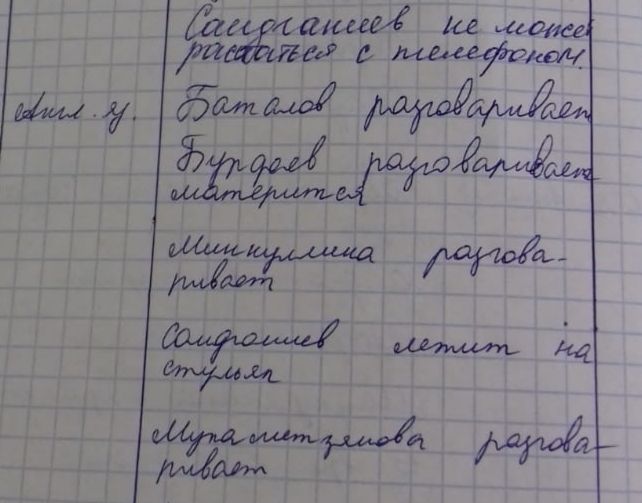 Саидганиев не може
расстаться с телефоном.
Англ. яз. Баталов разговаривает
Бурдаев разговаривает
матерится
Миннуллина разгова-
ривает
Саидганиев лежит на
стульях
Мухаметзянова разгова-
ривает